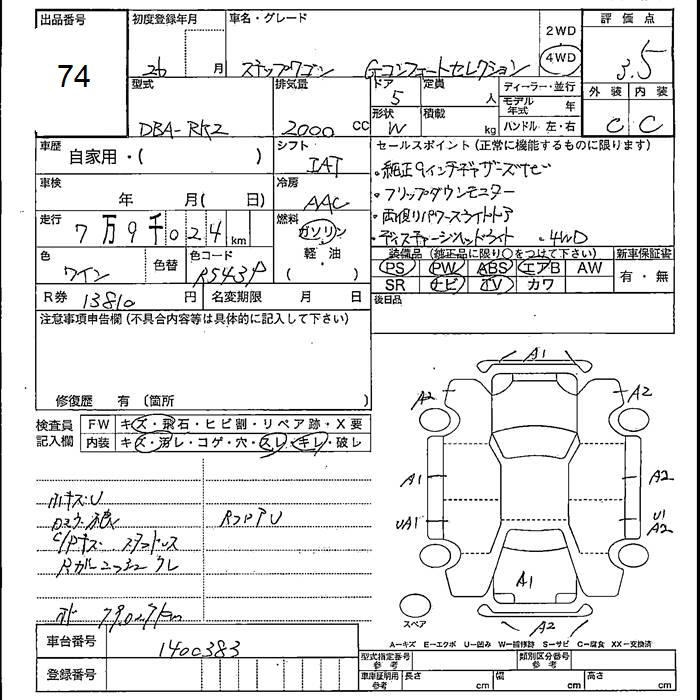 出品番号
74
初度登録年月
26 月
車名・グレード
ステップワゴン Gコンフォートセレクション
2WD
4WD
評価点
3.5
外装 内装
C C
型式
DBA-RK2
排気量
2000 CC
ドア
5
定員
人
形状
W
積載
kg
ディーラー・並行
モデル年式 年
ハンドル 左・右
車歴
自家用・( )
シフト
IAT
車検
年 月( 日)
冷房
AAC
走行
7万9千024km
燃料
ガソリン
・
軽・油
( )
色
ワイン
色替
色コード
R543P
R券 13810 円
名変期限 月 日
セールスポイント(正常に機能するものに限ります)
・純正9インチ
・フリップダウンモニター
・両側パワースライドドア
・ディスチャージヘッドライト ・4WD
装備品(純正品に限り○をつけて下さい)
新車保証書
PS PW ABS エアB AW
SR ナビ TV カワ
有・無
後日品
注意事項申告欄(不具合内容等は具体的に記入して下さい)
修復歴 有(箇所 )
検査員
記入欄
FW キズ・飛石・ヒビ割・リペア跡・X要
内装 キズ・汚レ・コゲ・穴・スレ・キレ・破レ
A1
A2 A2
A1 A2
UA1 U1
A2
A1
A2
スペア
A－キズ E－エクボ U－凹み W－補修跡 S－サビ C－腐食 XX－交換済
車台番号
1400383
登録番号
型式指定番号
参考
類別区分番号
参考
車庫証明用
参考
長さ cm
幅 cm
高さ cm